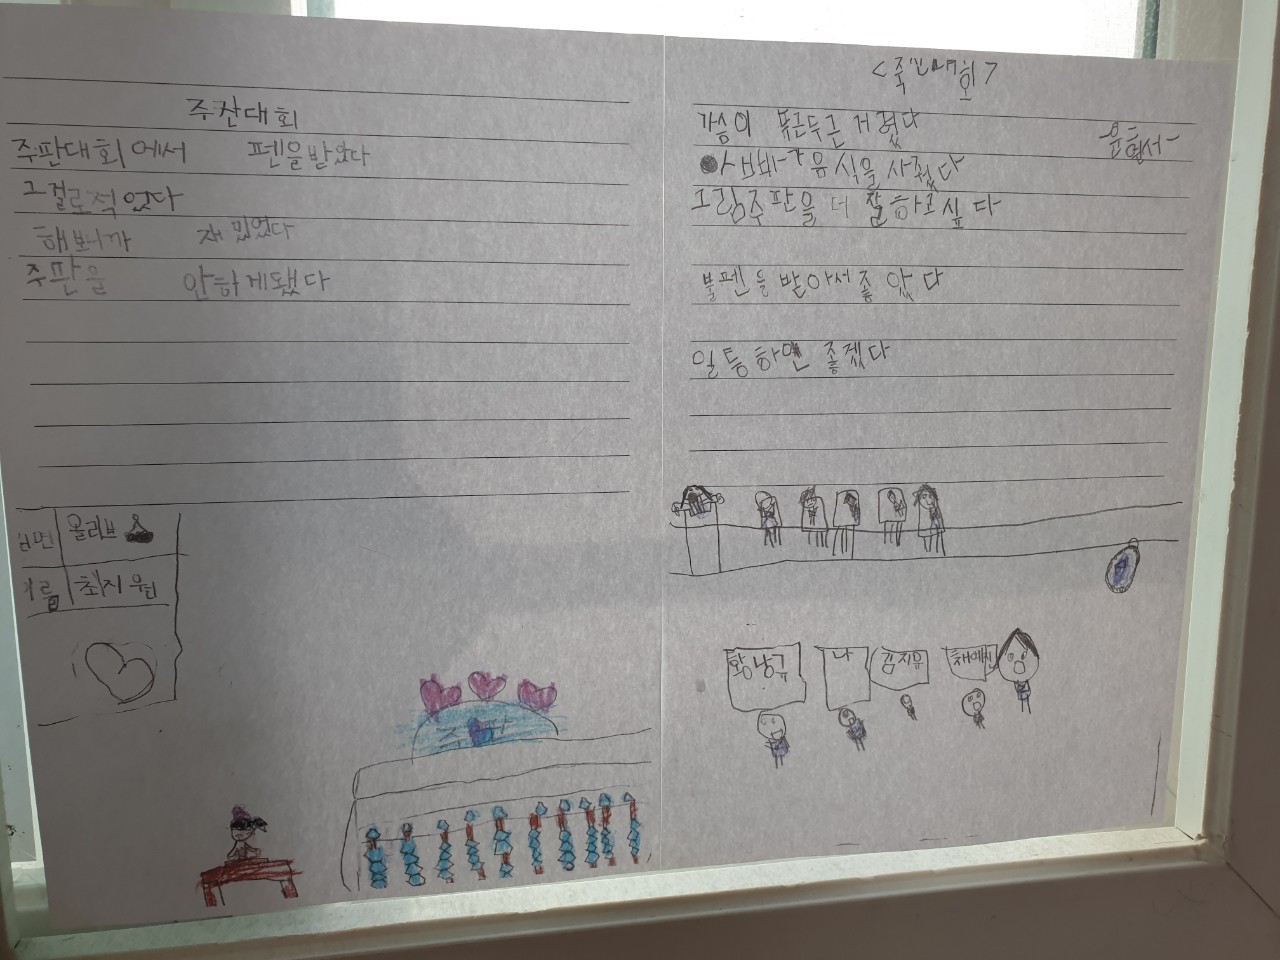 주산대회
주판대회에서 펜을받았다
그걸로적었다
해보니까 재밌었다
주판을 안하게됐다
올리브
이름 최지원
주판
<주산대회>
가슴이 두근두근 거렸다
윤현서
음식을 사줬다
그림주판을 더 잘하고싶다
볼펜을 받아서좋았다
일등하면 좋겠다
황남규 나 김지유 채예진